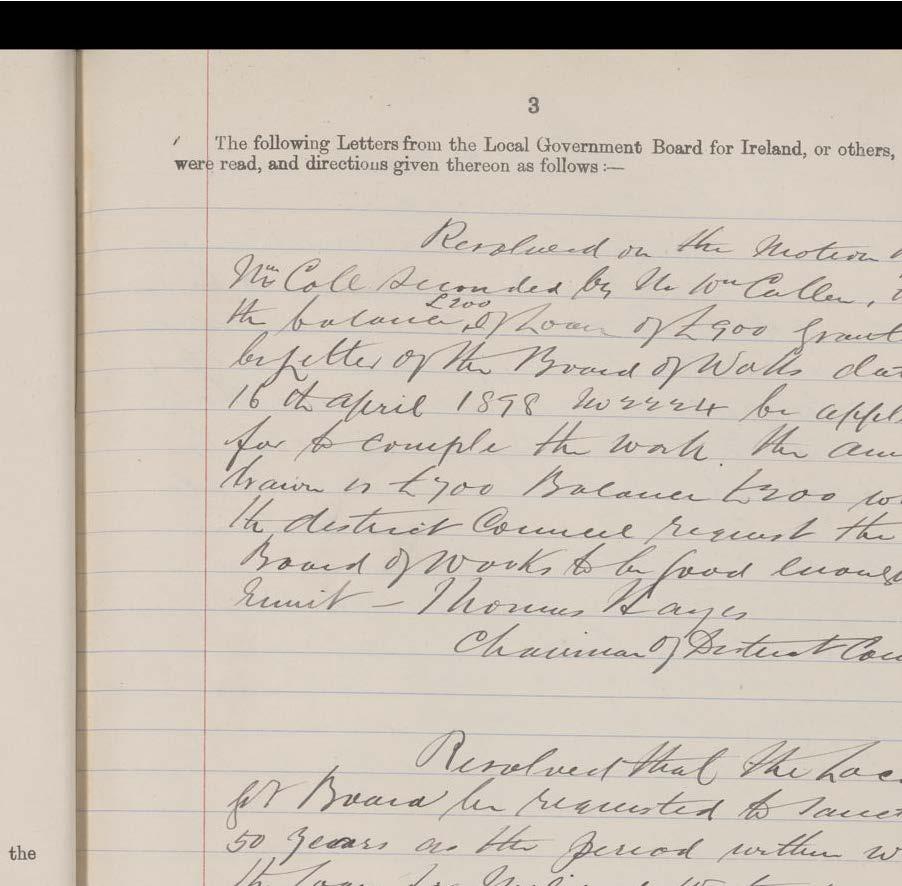 3
The following Letters from the Local Government Board for Ireland, or others,
were read, and directions given thereon as follows :—
Resolved on the Motion
Mr Cole seconded by Mr Wm Cullen,
£200
the balance of Loan of £900 grant
by letter of the Board of Works dat
16 th april 1898 No 2224 be appl
for to comple the work. the am
drawn is £700 Balance £200 w
the district Council request the
Board of Works to be good enoug
remit – Thomas Hayes
Chairman of District Cou
Resolved that the Loc
Gvt Board be requested to sanct
50 years as the period within w
the loan
the